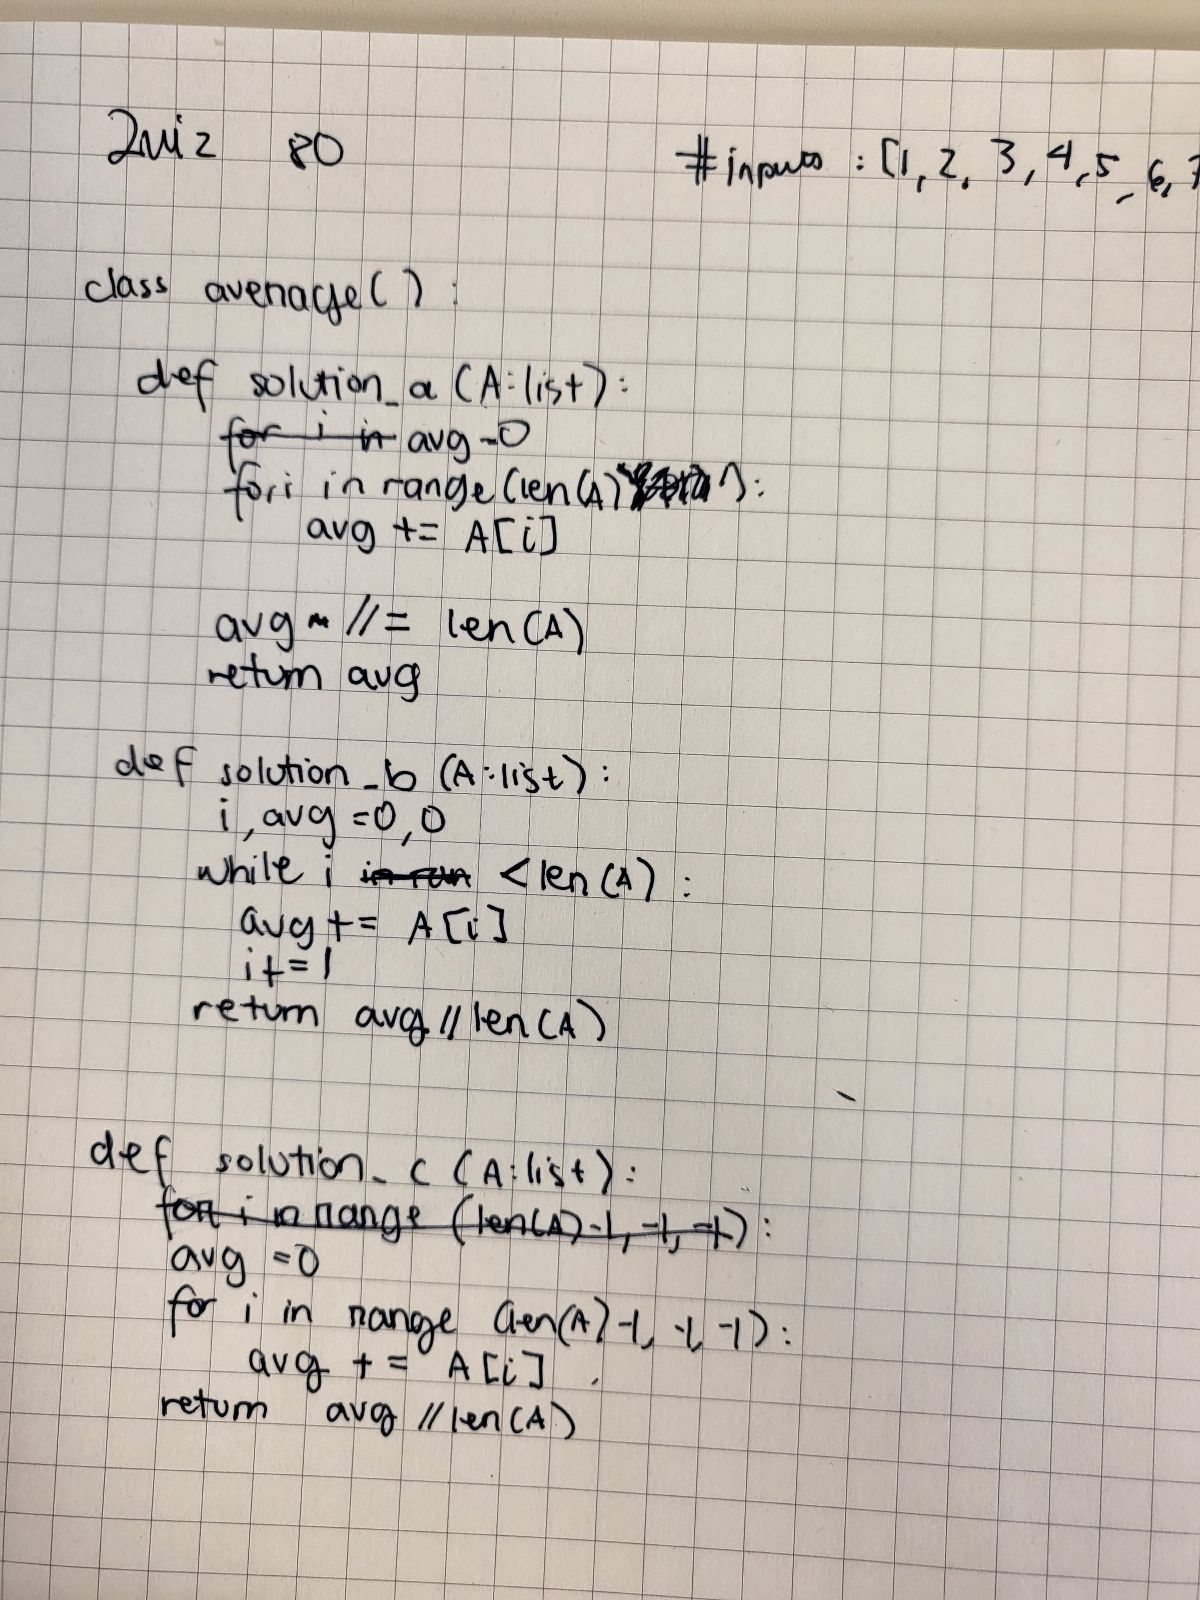 Quiz 80
#inputs : [1, 2, 3, 4, 5, 6, 7
class average() :
def solution_a (A:list):
for i in avg=0
for i in range(len(A)):
avg += A[i]
avg //= len(A)
return avg
def solution_b (A:list):
i, avg =0,0
while i in ran < len(A) :
avg += A[i]
i+=1
return avg // len(A)
def solution_c (A:list):
for i in range (len(A)-1, -1, -1):
avg =0
for i in range (len(A)-1, -1, -1):
avg += A[i]
return avg // len(A)